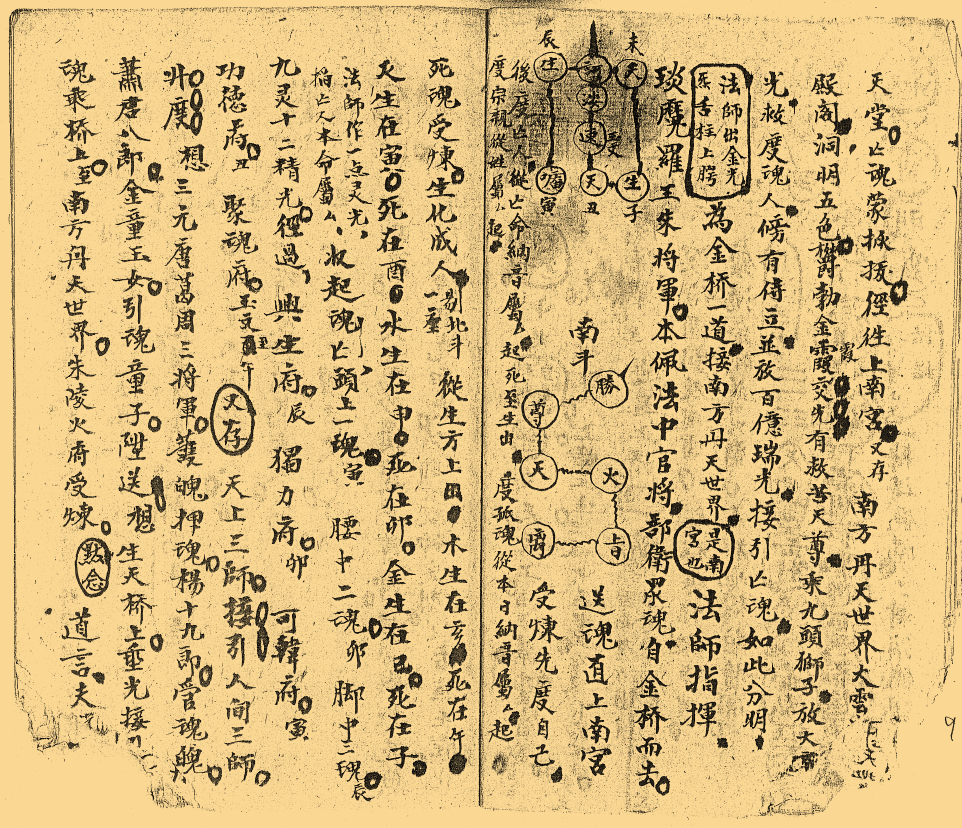 天堂亡魂蒙拯援徑往上南宮又存 南方丹天世界大雲
殿阁洞明五色欝勃金霞交光有救苦天尊乘九頭獅子放大
光救度魂人傍有侍立並放百億瑞光接引亡魂如此分明
法師出金光
炁舌柱上腭
為金桥一道接南方丹天世界
是南
宮也
法師指揮
琰魔羅王朱将軍本佩法中官将部衛眾魂自金桥而去
未
天
生
子
受
煉
天
丑
辰
生
寅
南斗
勝
尊
天
火
旨
离
送魂直上南宮
受煉先度自己
後度亡人從亡命納音屬么起死至生由
度孤魂從本日納音屬么起
度宗親從姓屬么起
死魂受煉生化成人
剔北斗
一座
從生方上出 木生在亥死在午
火生在寅死在酉水生在申死在卯 金生在巳死在子
法師作一点灵光
稲亡人本命屬么
收起魂亡頭上一魂寅 腰中二魂卯 脚中三魂辰
九灵十二精光徑過興生府辰 獨力府卯 可韓府寅
功德府丑 聚魂府玉文午
又存
天上三師接引人间三師
升度 想三元唐葛周三将軍護魄押魂楊十九郎管魂魄
蕭唐八郎金童玉女引魂童子陞送想生天桥上垂光接
魂乘桥上至南方丹天世界朱陵火府受煉
默念
道言夫